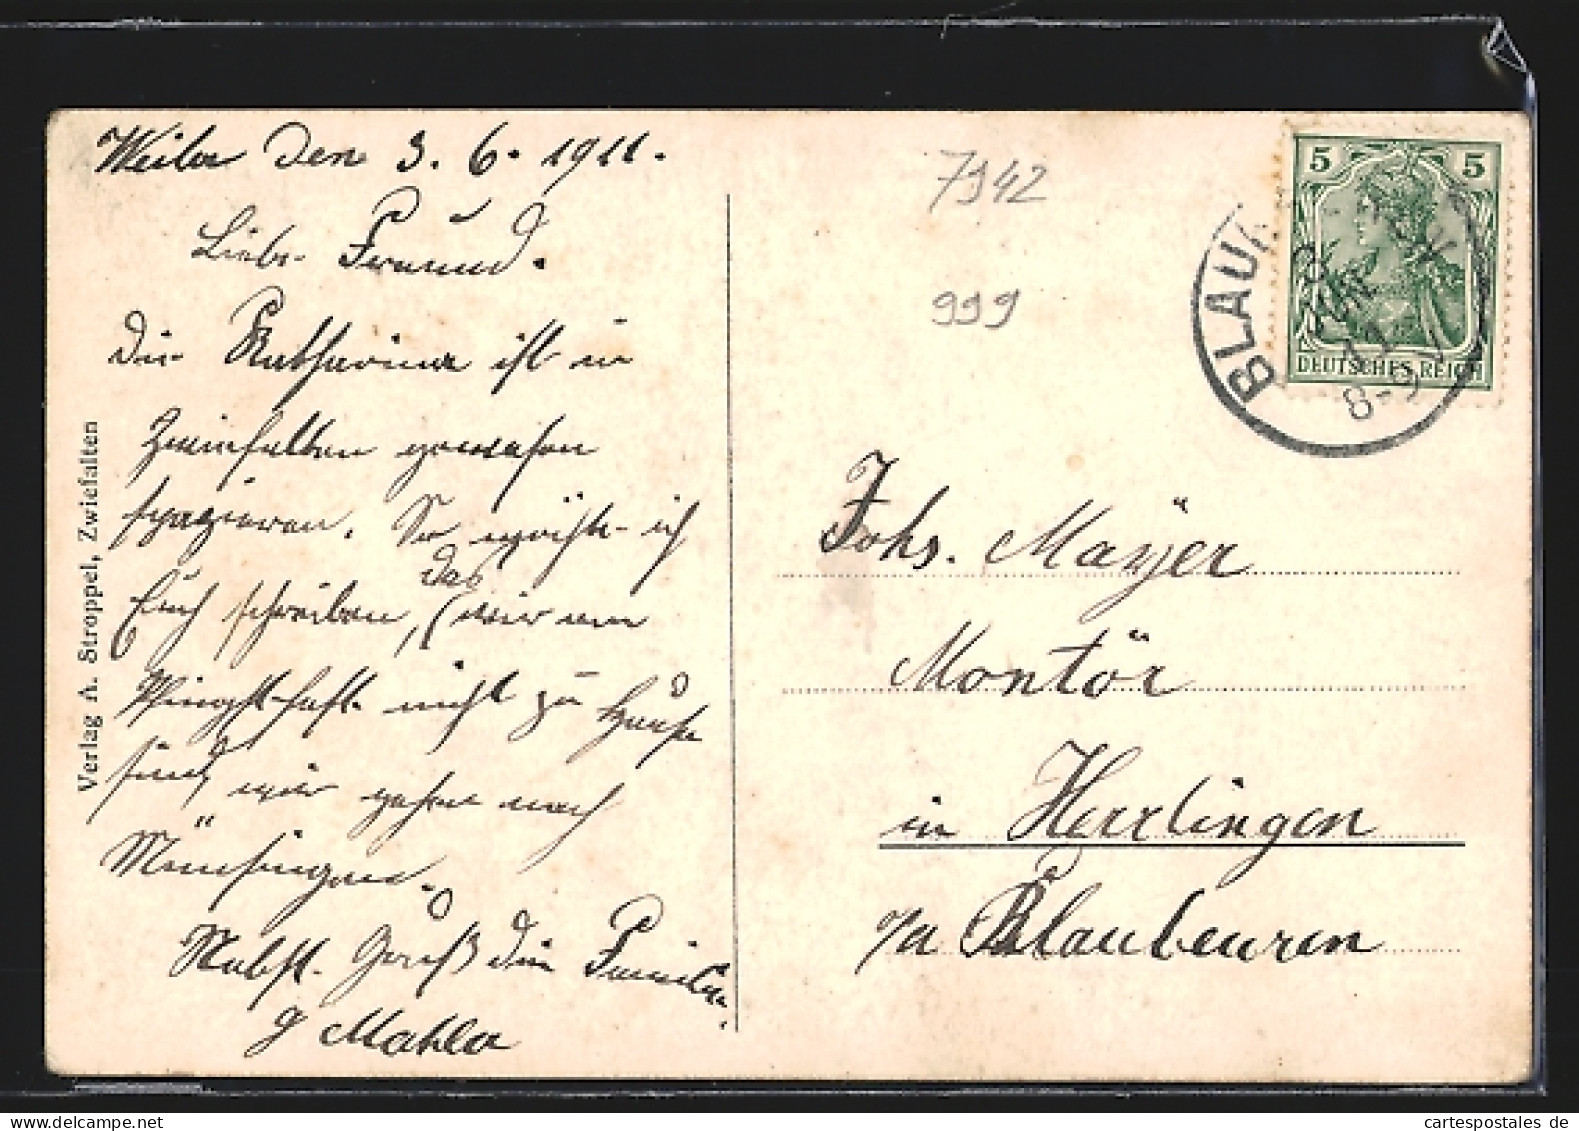 Weiler den 3. 6. 1911.
Liebe Freund.
die Katharina ist in
Zwiefalten gewesen
spazieren. So möchte ich
das
Euch schreiben, (wir am
Pfingstfest nicht zu Hause
sind, wir gehen nach
Münsingen.
Nebst Gruß die Familie
J Mahler
Verlag A. Stroppel, Zwiefalten
7942
999
5 5
DEUTSCHES REICH
BLAU
8-9
Johs. Mayer
Montör
in Herrlingen
o/a Blaubeuren
cartespostales de